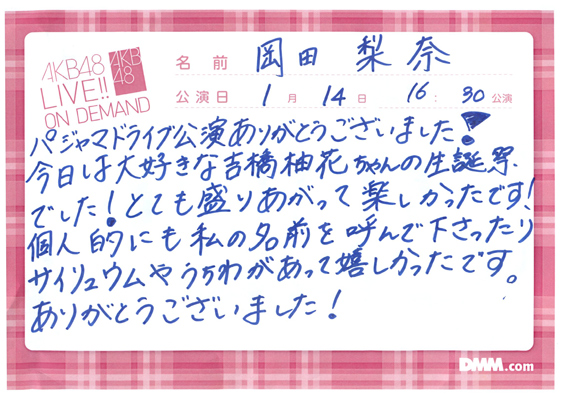 AKB48
LIVE!!
ON DEMAND
AKB
48
名前 岡田 梨奈
公演日 1月 14日 16:30公演
パジャマドライブ公演ありがとうございました!
今日は大好きな吉橋柚花ちゃんの生誕祭
でした!とても盛りあがって楽しかったです!
個人的にも私の名前を呼んで下さったり
サイリュウムやうちわがあって嬉しかったです。
ありがとうございました!
DMM.com